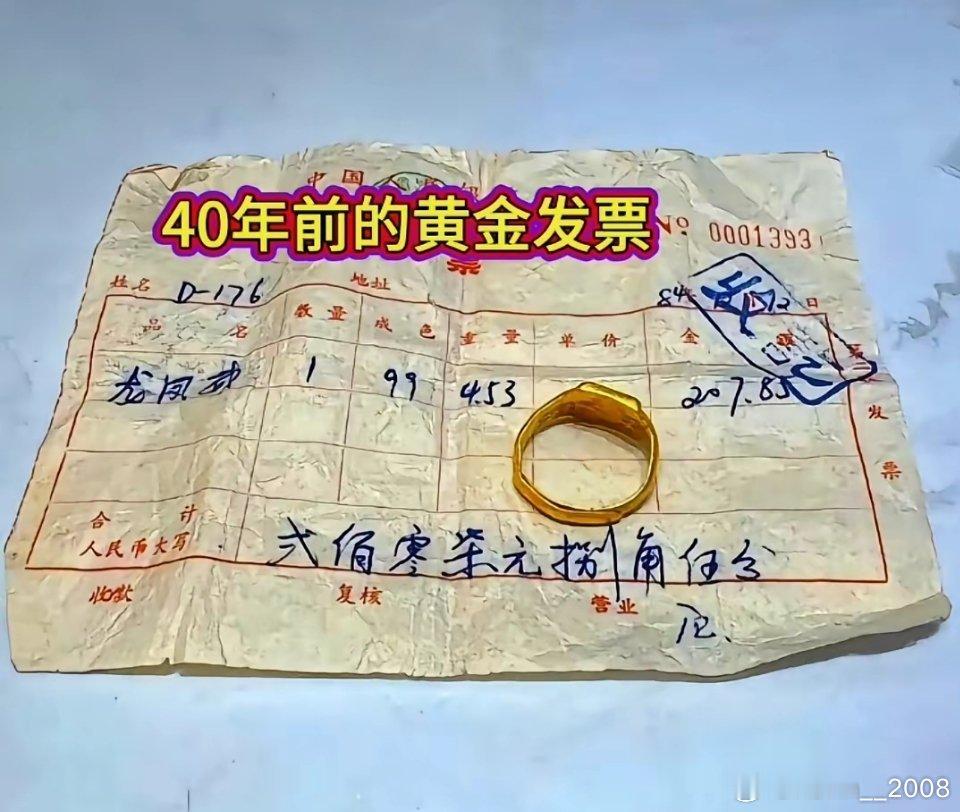 中国
40年前的黄金发票
票
№ 0001393
姓名 D-176 地址 84 12日
品名 数量 成色 重量 单价 金额
龙凤戒 1 99 4.53 207.85
发票
合计
人民币大写 弍佰零柒元捌角伍分
收款 复核 营业
__2008